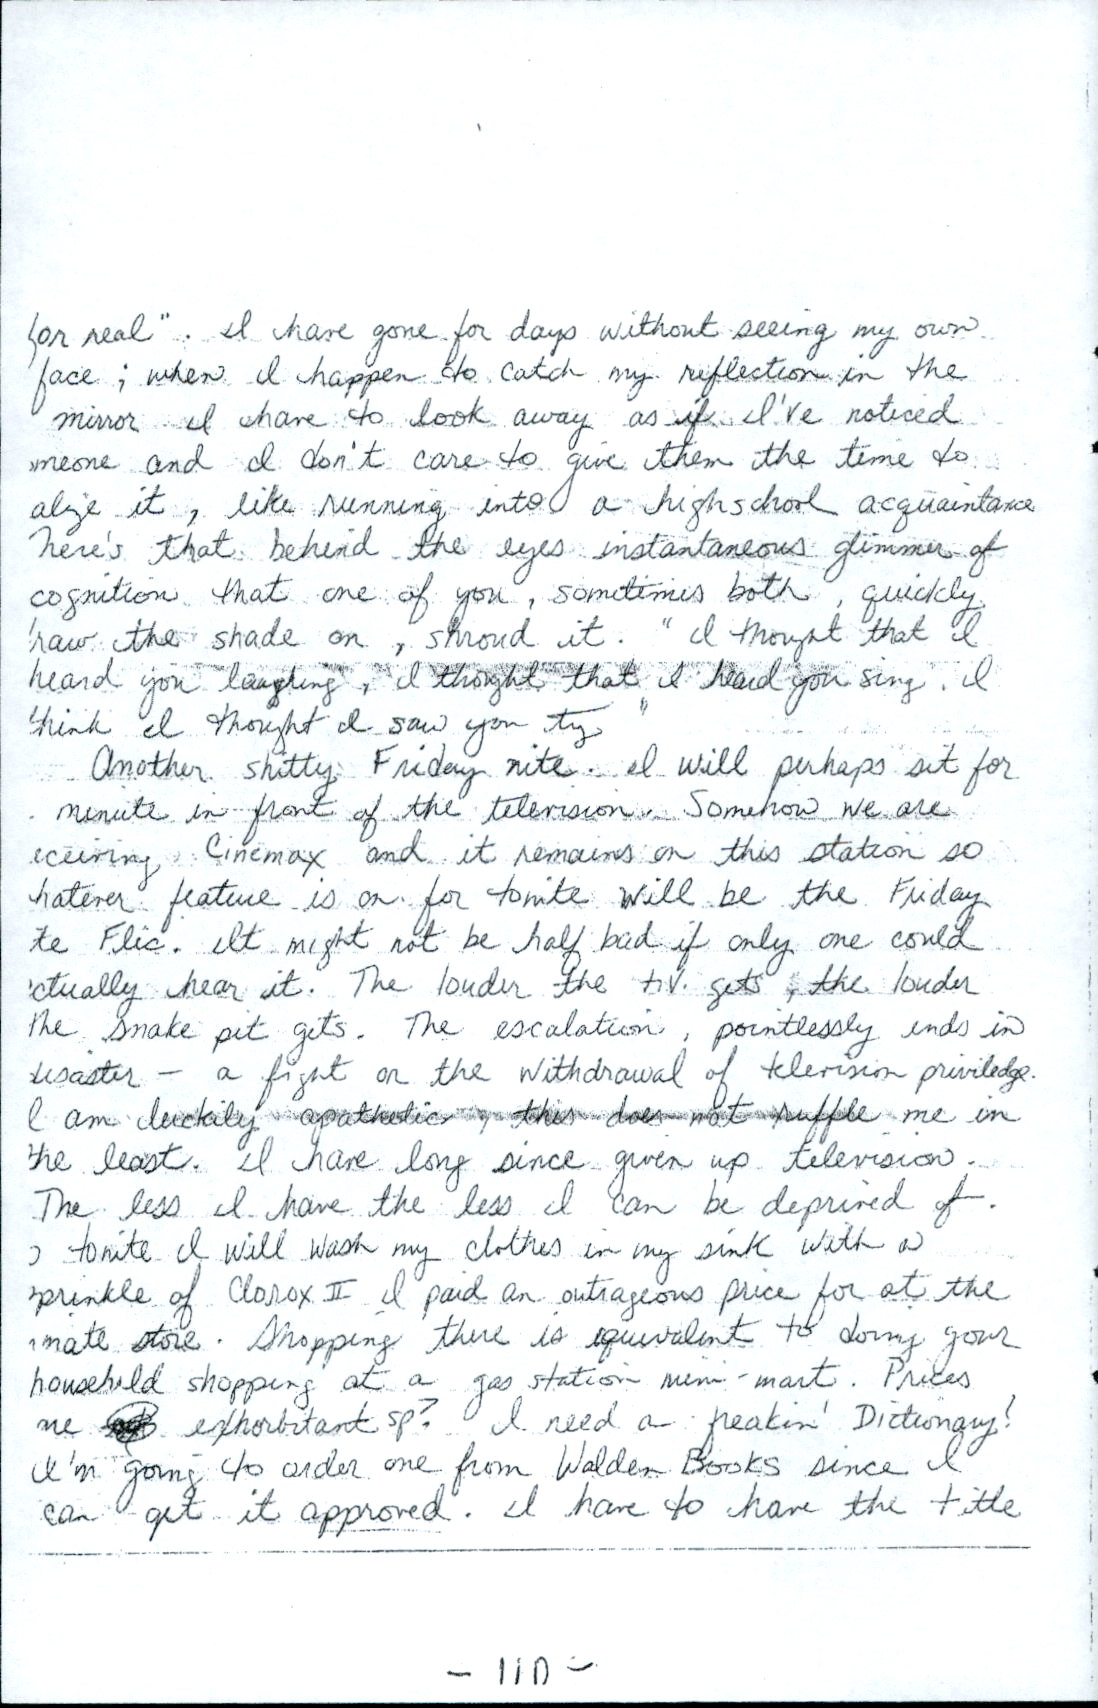 for real". I have gone for days without seeing my own
face ; when I happen to catch my reflection in the
mirror I have to look away as if I've noticed
meone and I don't care to give them the time to
alize it, like running into a highschool acquaintance
here's that behind the eyes instantaneous glimmer of
cognition that one of you, sometimes both, quickly
raw the shade on, shroud it. "I thought that I
heard you laughing, I thought that I heard you sing. I
think I thought I saw you try"
Another shitty Friday nite. I will perhaps sit for
minute in front of the television. Somehow we are
eceiving Cinemax and it remains on this station so
hatever feature is on for tonite will be the Friday
te Flic. It might not be half bad if only one could
ctually hear it. The louder the t.v. gets, the louder
the snake pit gets. The escalation, pointlessly ends in
disaster – a fight or the withdrawal of television priviledge.
I am luckily apathetic, this does not ruffle me in
the least. I have long since given up television.
The less I have the less I can be deprived of.
o tonite I will wash my clothes in my sink with a
sprinkle of Clorox II I paid an outrageous price for at the
nmate store. Shopping there is equivalent to doing your
household shopping at a gas station mini-mart. Prices
are exhorbitant sp? I need a freakin' Dictionary!
I'm going to order one from Walden Books since I
can get it approved. I have to have the title
- 110 -